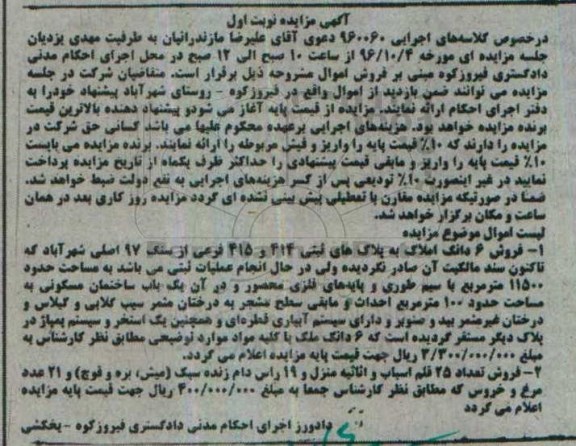 آگهی مزایده نوبت اول
درخصوص کلاسه‌های اجرایی ۹۶۰۰۶۰ دعوی آقای علیرضا مازندرانیان به طرفیت مهدی یزدیان
جلسه مزایده ای مورخه ۹۶/۱۰/۴ از ساعت ۱۰ صبح الی ۱۲ صبح در محل اجرای احکام مدنی
دادگستری فیروزکوه مبنی بر فروش اموال مشروحه ذیل برقرار است. متقاضیان شرکت در جلسه
مزایده می توانند ضمن بازدید از اموال واقع در فیروزکوه - روستای شهرآباد پیشنهاد خودرا به
دفتر اجرای احکام ارائه نمایند. مزایده از قیمت پایه آغاز می شودو پیشنهاد دهنده بالاترین قیمت
برنده مزایده خواهد بود. هزینه‌های اجرایی برعهده محکوم علیها می باشد کسانی حق شرکت در
مزایده را دارند که ۱۰٪ قیمت پایه را واریز و فیش مربوطه را ارائه نمایند. برنده مزایده می بایست
۱۰٪ قیمت پایه را واریز و مابقی قیمت پیشنهادی را حداکثر ظرف یکماه از تاریخ مزایده پرداخت
نمایید در غیر اینصورت ۱۰٪ تودیعی پس از کسر هزینه‌های اجرایی به نفع دولت ضبط خواهد شد.
ضمناً در صورتیکه مزایده مقارن با تعطیلی پیش بینی نشده ای گردد مزایده روز کاری بعد در همان
ساعت و مکان برگزار خواهد شد.
لیست اموال موضوع مزایده
۱- فروش ۶ دانگ املاک به پلاک های ثبتی ۴۱۴ و ۴۱۵ فرعی از سنگ ۹۷ اصلی شهرآباد که
تاکنون سند مالکیت آن صادر نگردیده ولی در حال انجام عملیات ثبتی می باشد به مساحت حدود
۱۱۵۰۰ مترمربع با سیم طوری و پایه‌های فلزی محصور و در آن یک باب ساختمان مسکونی به
مساحت حدود ۱۰۰ مترمربع احداث و مابقی سطح مشجر به درختان مثمر سیب گلابی و گیلاس و
درختان غیرمثمر بید و صنوبر و دارای سیستم آبیاری قطره‌ای و همچنین یک استخر و سیستم پمپاژ در
پلاک دیگر مستقر گردیده است که ۶ دانگ ملک با کلیه مواد موارد توضیعی مطابق نظر کارشناس به
مبلغ ۳/۳۰۰/۰۰۰/۰۰۰ ریال جهت قیمت پایه مزایده اعلام می گردد.
۲- فروش تعداد ۲۵ قلم اسباب و اثاثیه منزل و ۱۹ راس دام زنده سبک (میش، بره و قوچ) و ۲۱ عدد
مرغ و خروس که مطابق نظر کارشناس جمعا به مبلغ ۴۰۰/۰۰۰/۰۰۰ ریال جهت قیمت پایه مزایده
اعلام می گردد
دادورز اجرای احکام مدنی دادگستری فیروزکوه - یخکشی